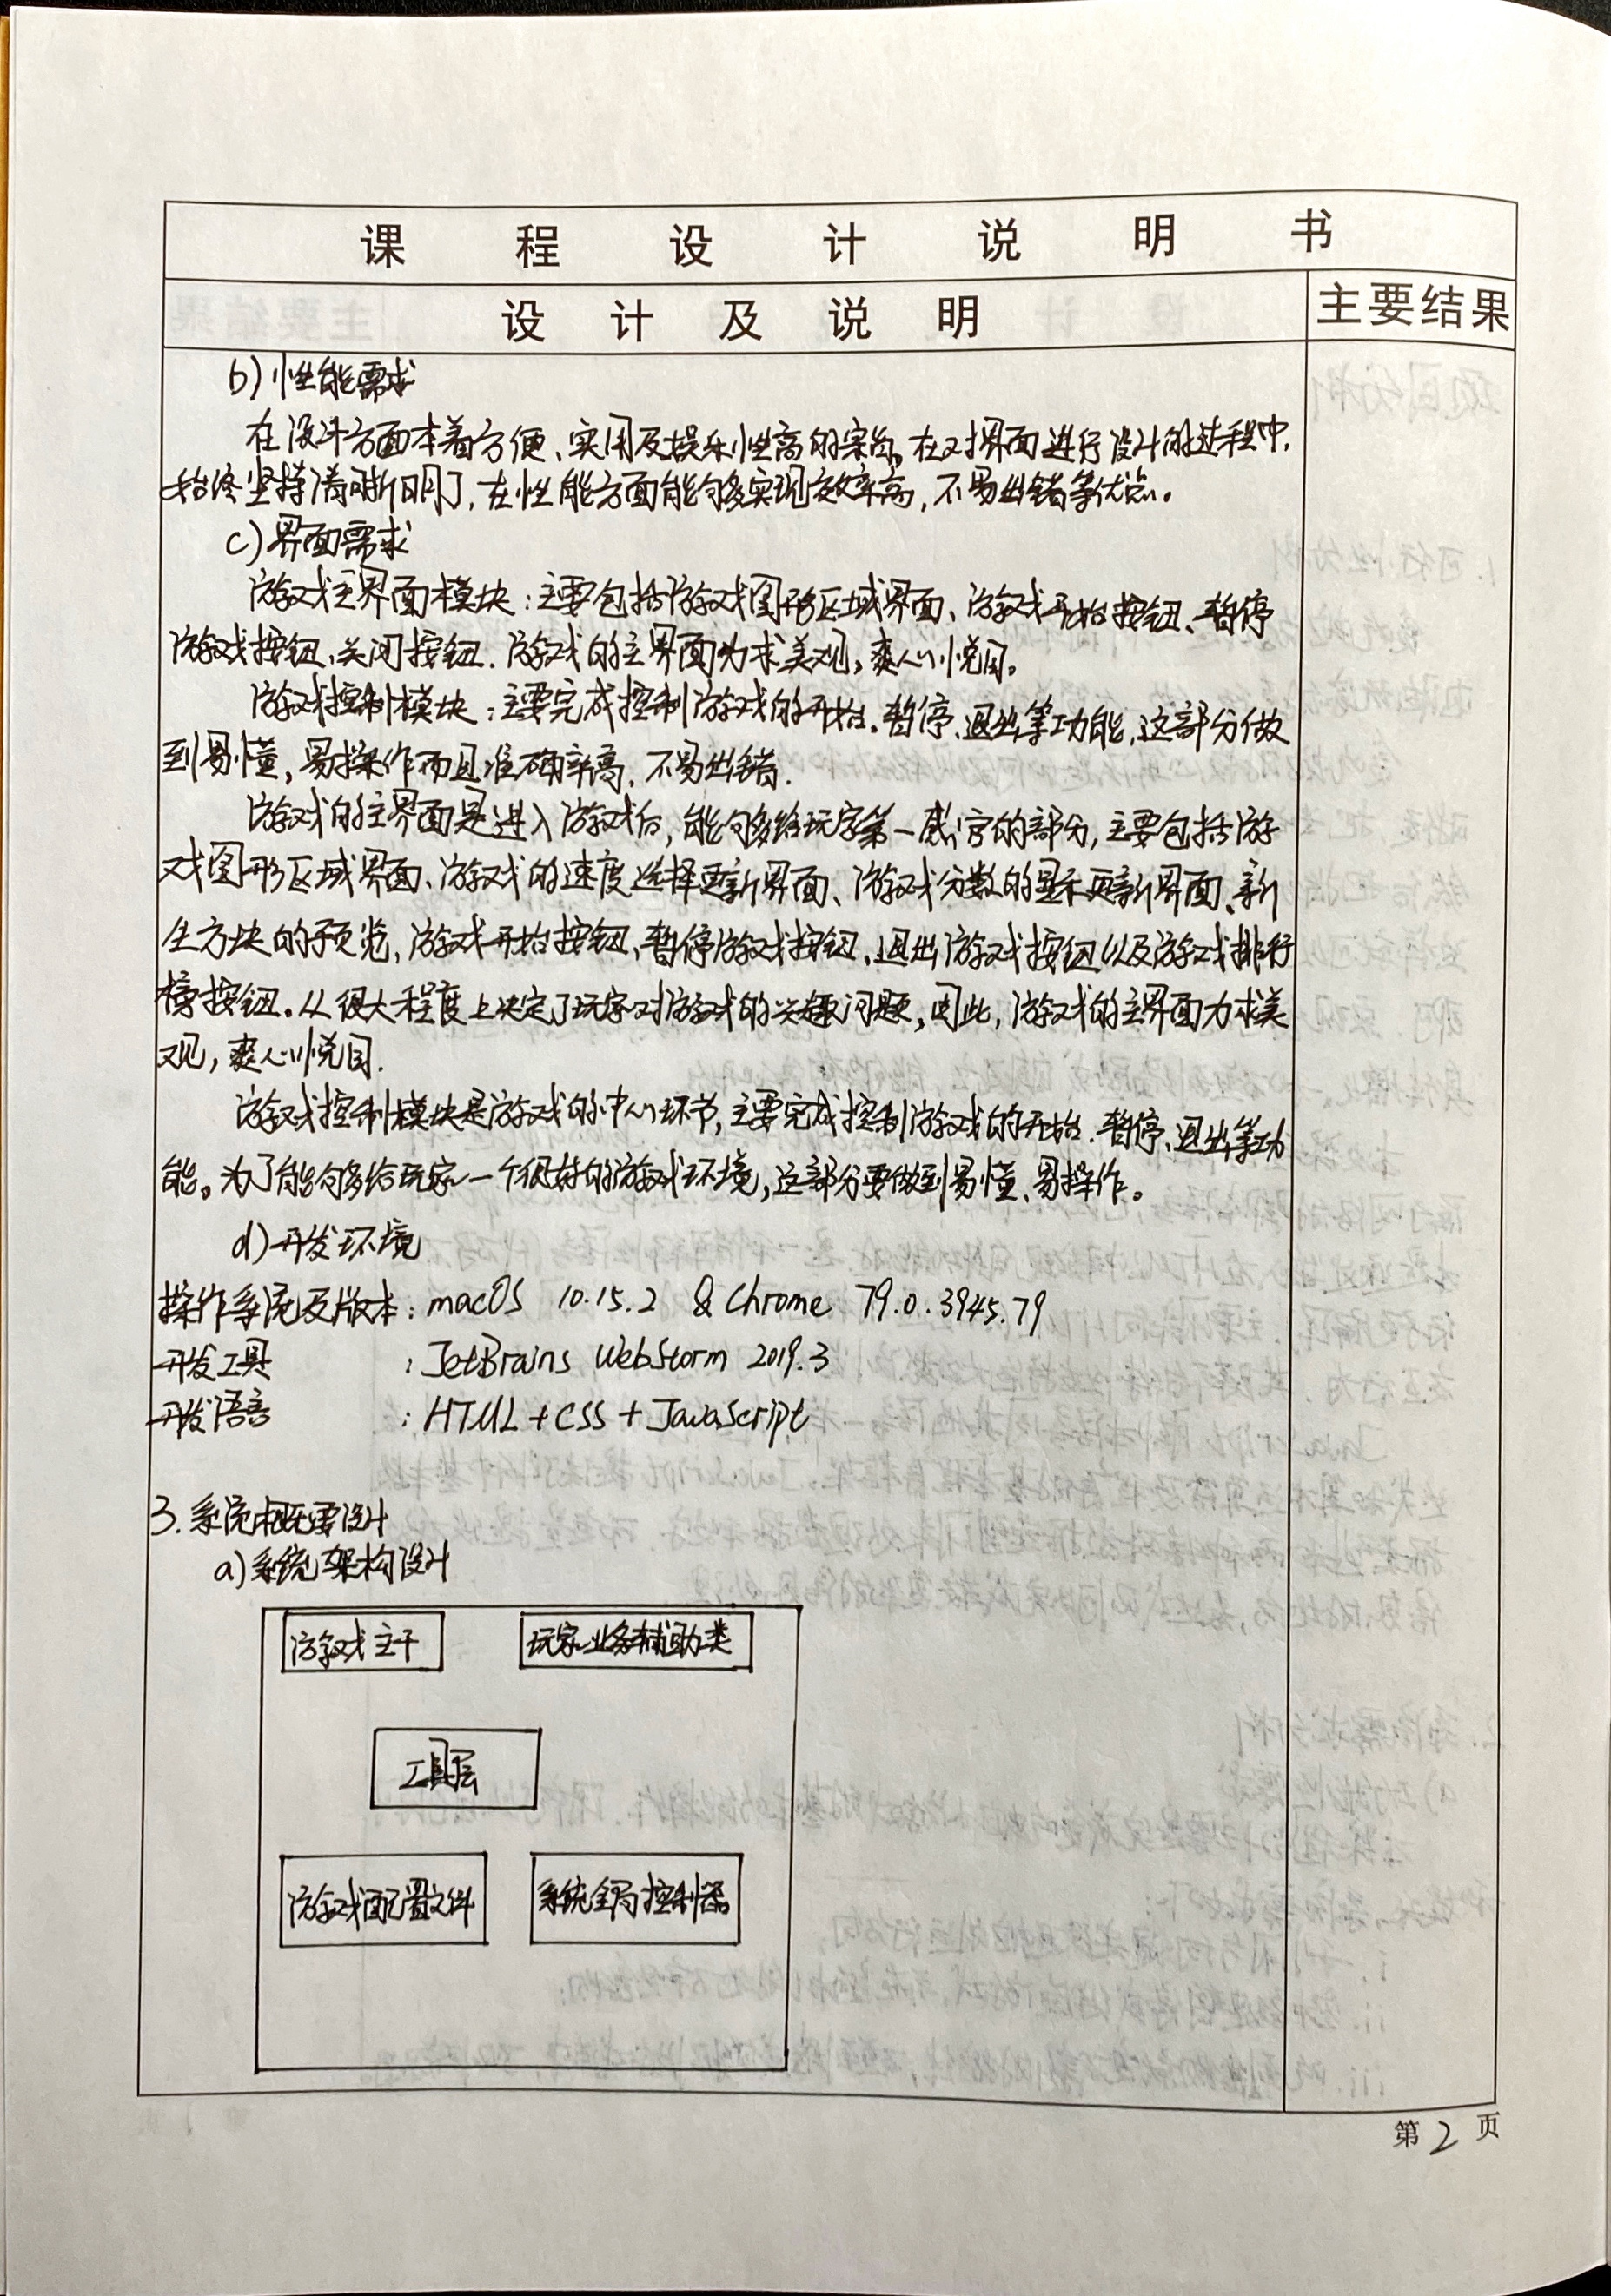 课程设计说明书
设计及说明
主要结果
b)性能需求
在设计方面本着方便、实用及娱乐性高的宗旨。在对界面进行设计的过程中,
始终坚持清晰明了,在性能方面能够实现效率高,不易出错等优点。
c)界面需求
游戏主界面模块:主要包括游戏图形区域界面、游戏开始按钮、暂停
游戏按钮、关闭按钮.游戏的主界面力求美观,爽心悦目。
游戏控制模块:主要完成控制游戏的开始.暂停、退出等功能,这部分做
到易懂,易操作而且准确率高,不易出错.
游戏的主界面是进入游戏后,能够给玩家第一感官的部分,主要包括游
戏图形区域界面、游戏的速度选择更新界面、游戏分数的显示更新界面、新
生方块的预览,游戏开始按钮、暂停游戏按钮、退出游戏按钮以及游戏排行
榜按钮。从很大程度上决定了玩家对游戏的兴趣问题,因此,游戏的主界面力求美
观,爽心悦目.
游戏控制模块是游戏的中心环节,主要完成控制游戏的开始.暂停、退出等功
能。为了能够给玩家一个很好的游戏环境,这部分要做到易懂、易操作。
d)开发环境
操作系统及版本:macOS 10.15.2 & Chrome 79.0.3945.79
开发工具:JetBrains WebStorm 2019.3
开发语言:HTML+CSS+JavaScript
3.系统概要设计
a)系统架构设计
游戏主干
玩家业务辅助类
工具层
游戏配置文件
系统全局控制器
第2页